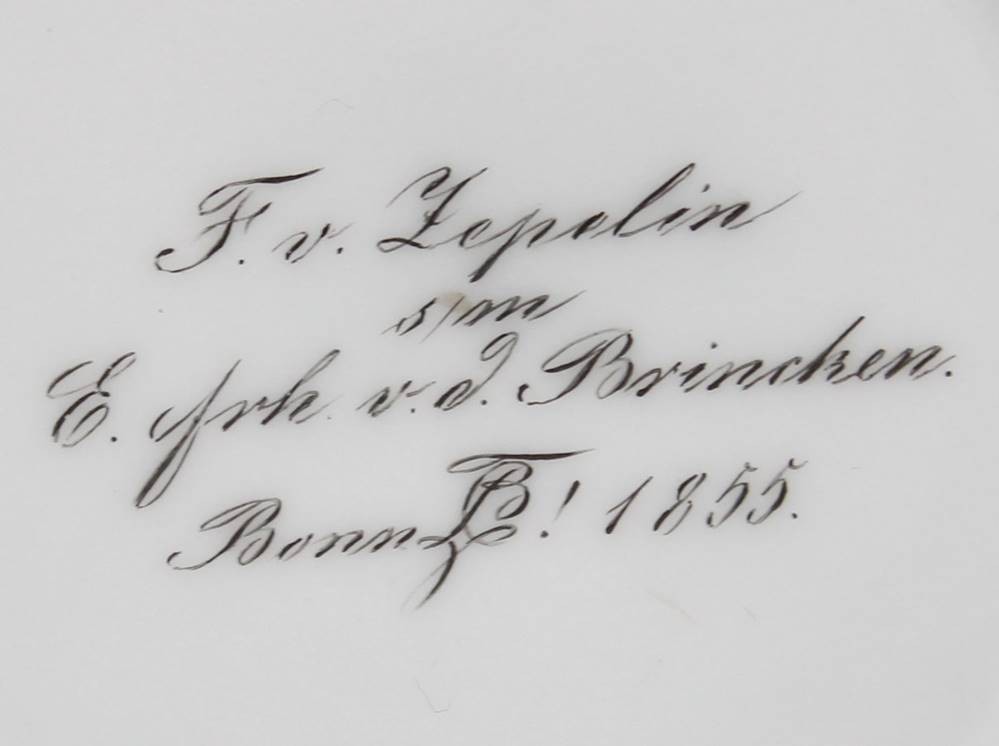 F. v. Zepelin
s/m
E. frh. v. d. Brincken.
Bonn ! 1855.